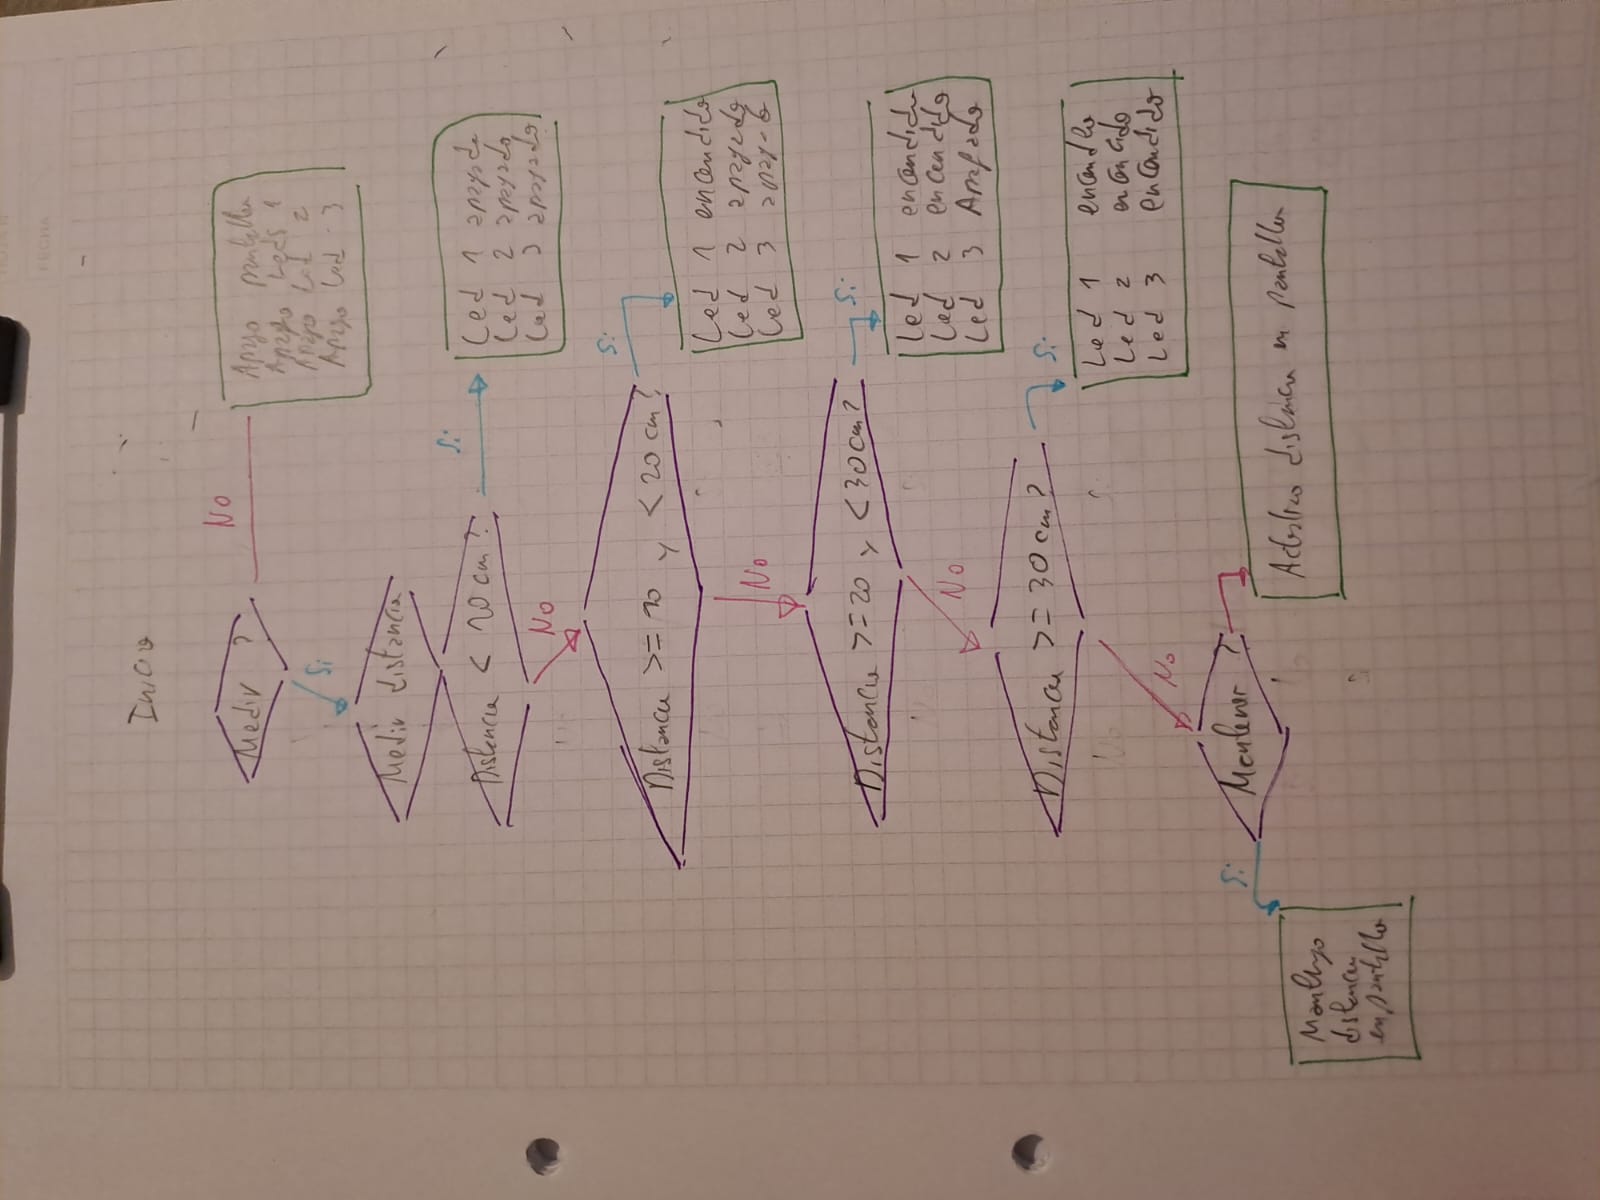 FECHA
Inicio
Medir ?
No
Apago pantalla
Apago Leds 1
Apago Led 2
Apago Led 3
Si
Medir distancia
Distancia < 10 cm?
Si
Led 1 apagado
Led 2 apagado
Led 3 apagado
No
Distancia >= 10 y < 20 cm?
Si
Led 1 encendido
Led 2 apagado
Led 3 apagado
No
Distancia >= 20 y < 30 cm?
Si
Led 1 encendido
Led 2 encendido
Led 3 Apagado
No
Distancia >= 30 cm?
Si
Led 1 encendido
Led 2 encendido
Led 3 encendido
No
Mantener ?
Si
Mantengo
distancia
en pantalla
Actualizo distancia en pantalla